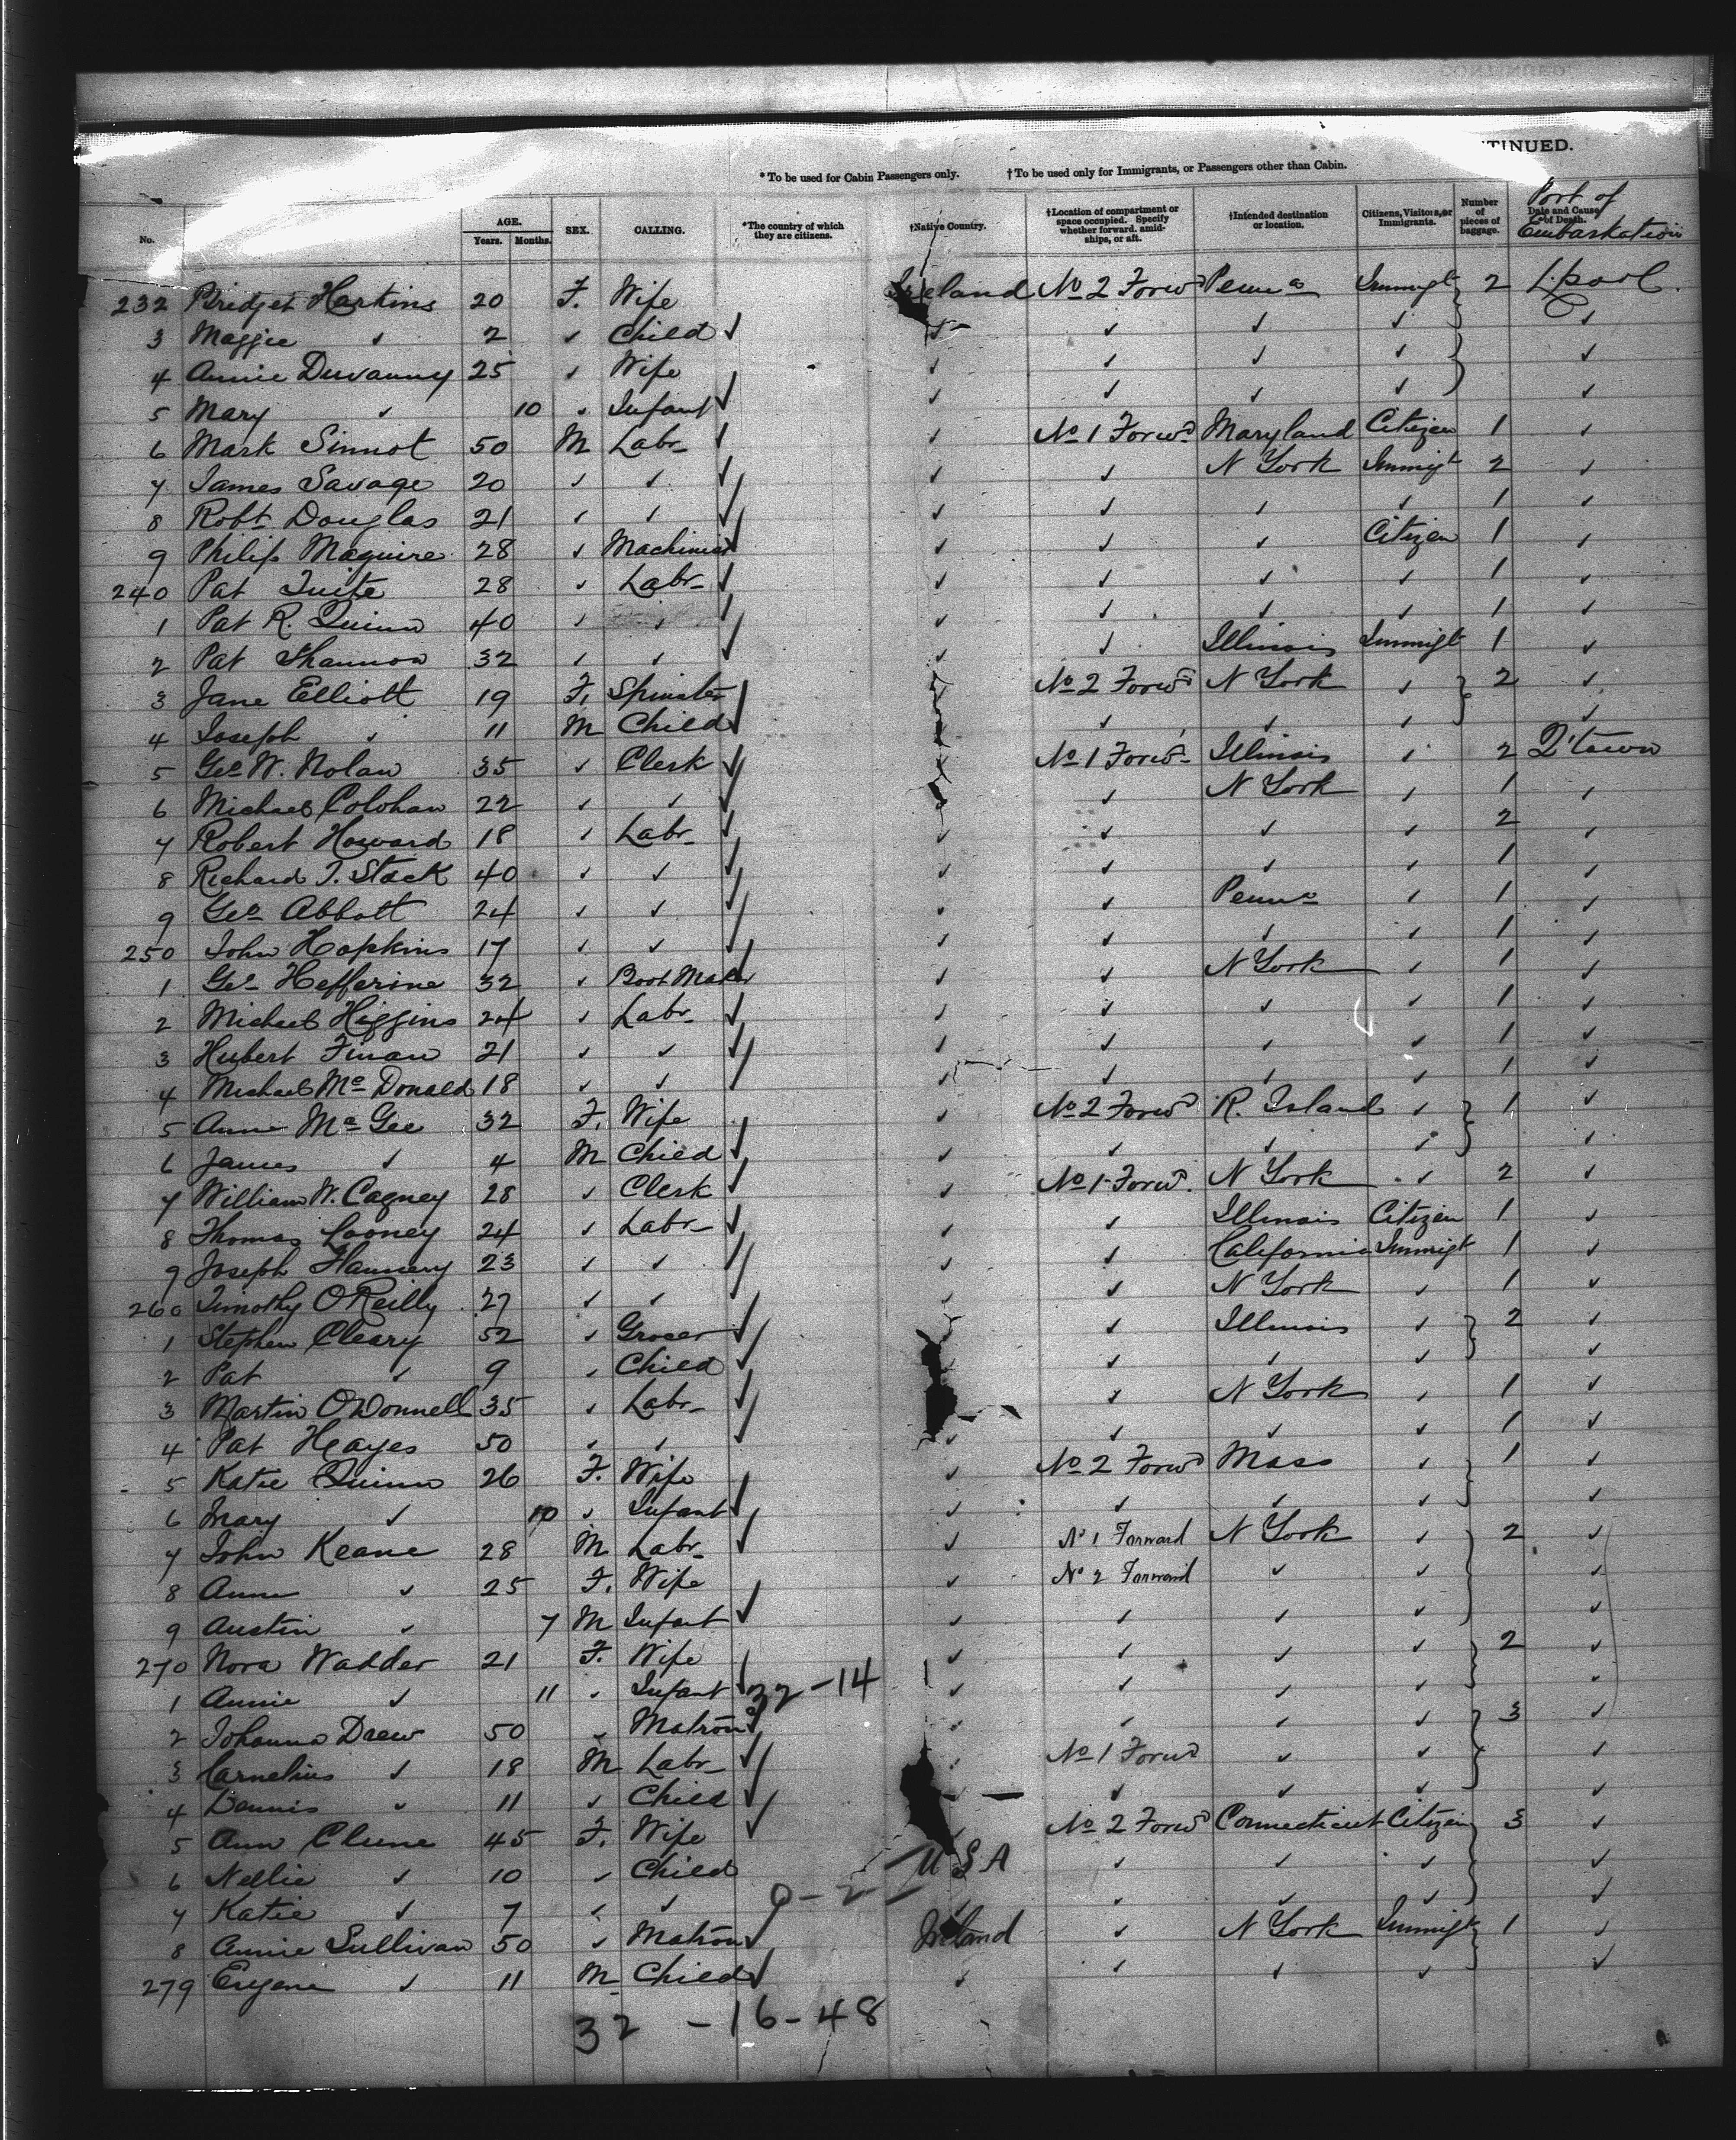 CONTINUED
TINUED.
* To be used for Cabin Passengers only. † To be used only for Immigrants, or Passengers other than Cabin.
No. AGE. Years. Months. SEX. CALLING. *The country of which they are citizens. †Native Country. †Location of compartment or space occupied. Specify whether forward, amidships, or aft. †Intended destination or location. Citizens, Visitors, or Immigrants. Number of pieces of baggage. Date and Cause of Death. Port of Embarkation
232 Bridget Harkins 20 F. Wife Ireland No 2 Forwd Penna Immigt 2 L.pool.
3 Maggie ✓ 2 ✓ Child ✓ ✓ ✓ ✓ ✓ ✓
4 Annie Duvanny 25 ✓ Wife ✓ ✓ ✓ ✓ ✓
5 Mary ✓ 10 ✓ Infant ✓ ✓ ✓ ✓ ✓ ✓
6 Mark Sinnot 50 M Labr ✓ ✓ No 1 Forwd Maryland Citizen 1 ✓
7 James Savage 20 ✓ ✓ ✓ ✓ ✓ N York Immigt 2 ✓
8 Robt Douglas 21 ✓ ✓ ✓ ✓ ✓ ✓ ✓ 1 ✓
9 Philip Maguire 28 ✓ Machinist ✓ ✓ ✓ ✓ Citizen 1 ✓
240 Pat Tuite 28 ✓ Labr ✓ ✓ ✓ ✓ ✓ 1 ✓
1 Pat R. Quinn 40 ✓ ✓ ✓ ✓ ✓ ✓ ✓ 1 ✓
2 Pat Shannon 32 ✓ ✓ ✓ ✓ ✓ Illinois Immigt 1 ✓
3 Jane Elliott 19 F. Spinster ✓ ✓ No 2 Forwd N York ✓ 2 ✓
4 Joseph ✓ 11 M Child ✓ ✓ ✓ ✓ ✓ ✓
5 Geo W. Nolan 35 ✓ Clerk ✓ ✓ No 1 Forwd Illinois ✓ 2 Q'town
6 Michael Colohan 22 ✓ ✓ ✓ ✓ ✓ N York ✓ 1 ✓
7 Robert Howard 18 ✓ Labr ✓ ✓ ✓ ✓ ✓ 2 ✓
8 Richard T. Stack 40 ✓ ✓ ✓ ✓ ✓ ✓ ✓ 1 ✓
9 Geo Abbott 24 ✓ ✓ ✓ ✓ ✓ Penna ✓ 1 ✓
250 John Hopkins 17 ✓ ✓ ✓ ✓ ✓ ✓ ✓ 1 ✓
1 Geo Hefferine 32 ✓ Boot Maker ✓ ✓ ✓ N York ✓ 1 ✓
2 Michael Higgins 24 ✓ Labr ✓ ✓ ✓ ✓ ✓ 1 ✓
3 Hubert Finan 21 ✓ ✓ ✓ ✓ ✓ ✓ ✓ 1 ✓
4 Michael McDonald 18 ✓ ✓ ✓ ✓ ✓ ✓ ✓ 1 ✓
5 Anne McGee 32 F. Wife ✓ No 2 Forwd R. Island ✓ 1 ✓
6 James ✓ 4 M Child ✓ ✓ ✓ ✓ ✓ ✓
7 William W. Cagney 28 ✓ Clerk ✓ ✓ No 1 Forwd. N York ✓ 2 ✓
8 Thomas Looney 24 ✓ Labr ✓ ✓ ✓ Illinois Citizen 1 ✓
9 Joseph Flannery 23 ✓ ✓ ✓ ✓ ✓ California Immigt 1 ✓
260 Timothy OReilly 27 ✓ ✓ ✓ ✓ ✓ N York ✓ 1 ✓
1 Stephen Cleary 52 ✓ Grocer ✓ ✓ ✓ Illinois ✓ 2 ✓
2 Pat ✓ 9 ✓ Child ✓ ✓ ✓ ✓ ✓ ✓
3 Martin ODonnell 35 ✓ Labr ✓ ✓ ✓ N York ✓ 1 ✓
4 Pat Heayes 50 ✓ ✓ ✓ ✓ ✓ ✓ ✓ 1 ✓
5 Katie Quinn 26 F. Wife ✓ No 2 Forwd Mass ✓ 1 ✓
6 Mary ✓ 10 ✓ Infant ✓ ✓ ✓ ✓ ✓ ✓
7 John Keane 28 M Labr ✓ ✓ No 1 Forward N York ✓ 2 ✓
8 Anne ✓ 25 F. Wife ✓ No 2 Forward ✓ ✓ ✓
9 Austin ✓ 7 M Infant ✓ ✓ ✓ ✓ ✓ ✓
270 Nora Wadder 21 F. Wife ✓ ✓ ✓ ✓ 2 ✓
1 Annie ✓ 11 ✓ Infant ✓ 32 - 14 ✓ ✓ ✓ ✓ ✓
2 Johanna Drew 50 ✓ Matron ✓ ✓ ✓ ✓ ✓ 3 ✓
3 Cornelius ✓ 18 M Labr ✓ ✓ No 1 Forwd ✓ ✓ ✓
4 Dennis ✓ 11 ✓ Child ✓ ✓ ✓ ✓ ✓ ✓
5 Ann Clune 45 F. Wife ✓ ✓ No 2 Forwd Connecticut Citizen 3 ✓
6 Nellie ✓ 10 ✓ Child U S A ✓ ✓ ✓ ✓
7 Katie ✓ 7 ✓ ✓ 0 - 2 ✓ ✓ ✓ ✓ ✓
8 Annie Sullivan 50 ✓ Matron ✓ Ireland ✓ N York Immigt 1 ✓
279 Eugene ✓ 11 M Child ✓ ✓ ✓ ✓ ✓ ✓
32 - 16 - 48